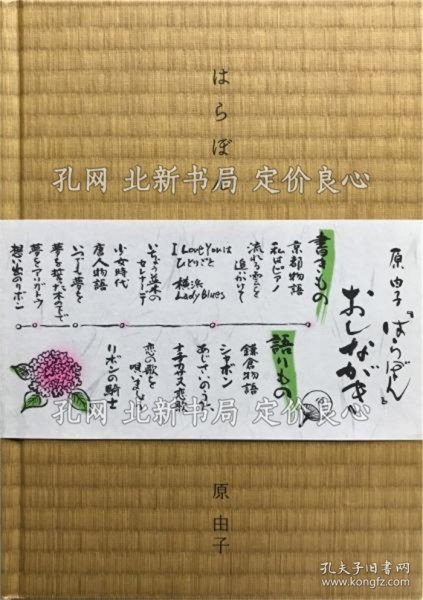 はらぼん
孔网 北新书局 定价良心
原 由子『はらぼん』
おしながき
書きもの
京都物語
私はピアノ
流れる雲を
追いかけて
I Love Youは
ひとりごと
横浜
Lady Blues
いちょう並木の
セレナーデ
少女時代
唐人物語
いつでも夢を
夢を誓った木の下で
夢をアリガトウ
想い出のリボン
語りもの
鎌倉物語
シャボン
あじさいのうた
ナチカサヌ恋歌
恋の歌を
唄いましょう
リボンの騎士
孔网 北新书局 定价良心
原 由子
孔夫子旧书网
www.kongfz.com